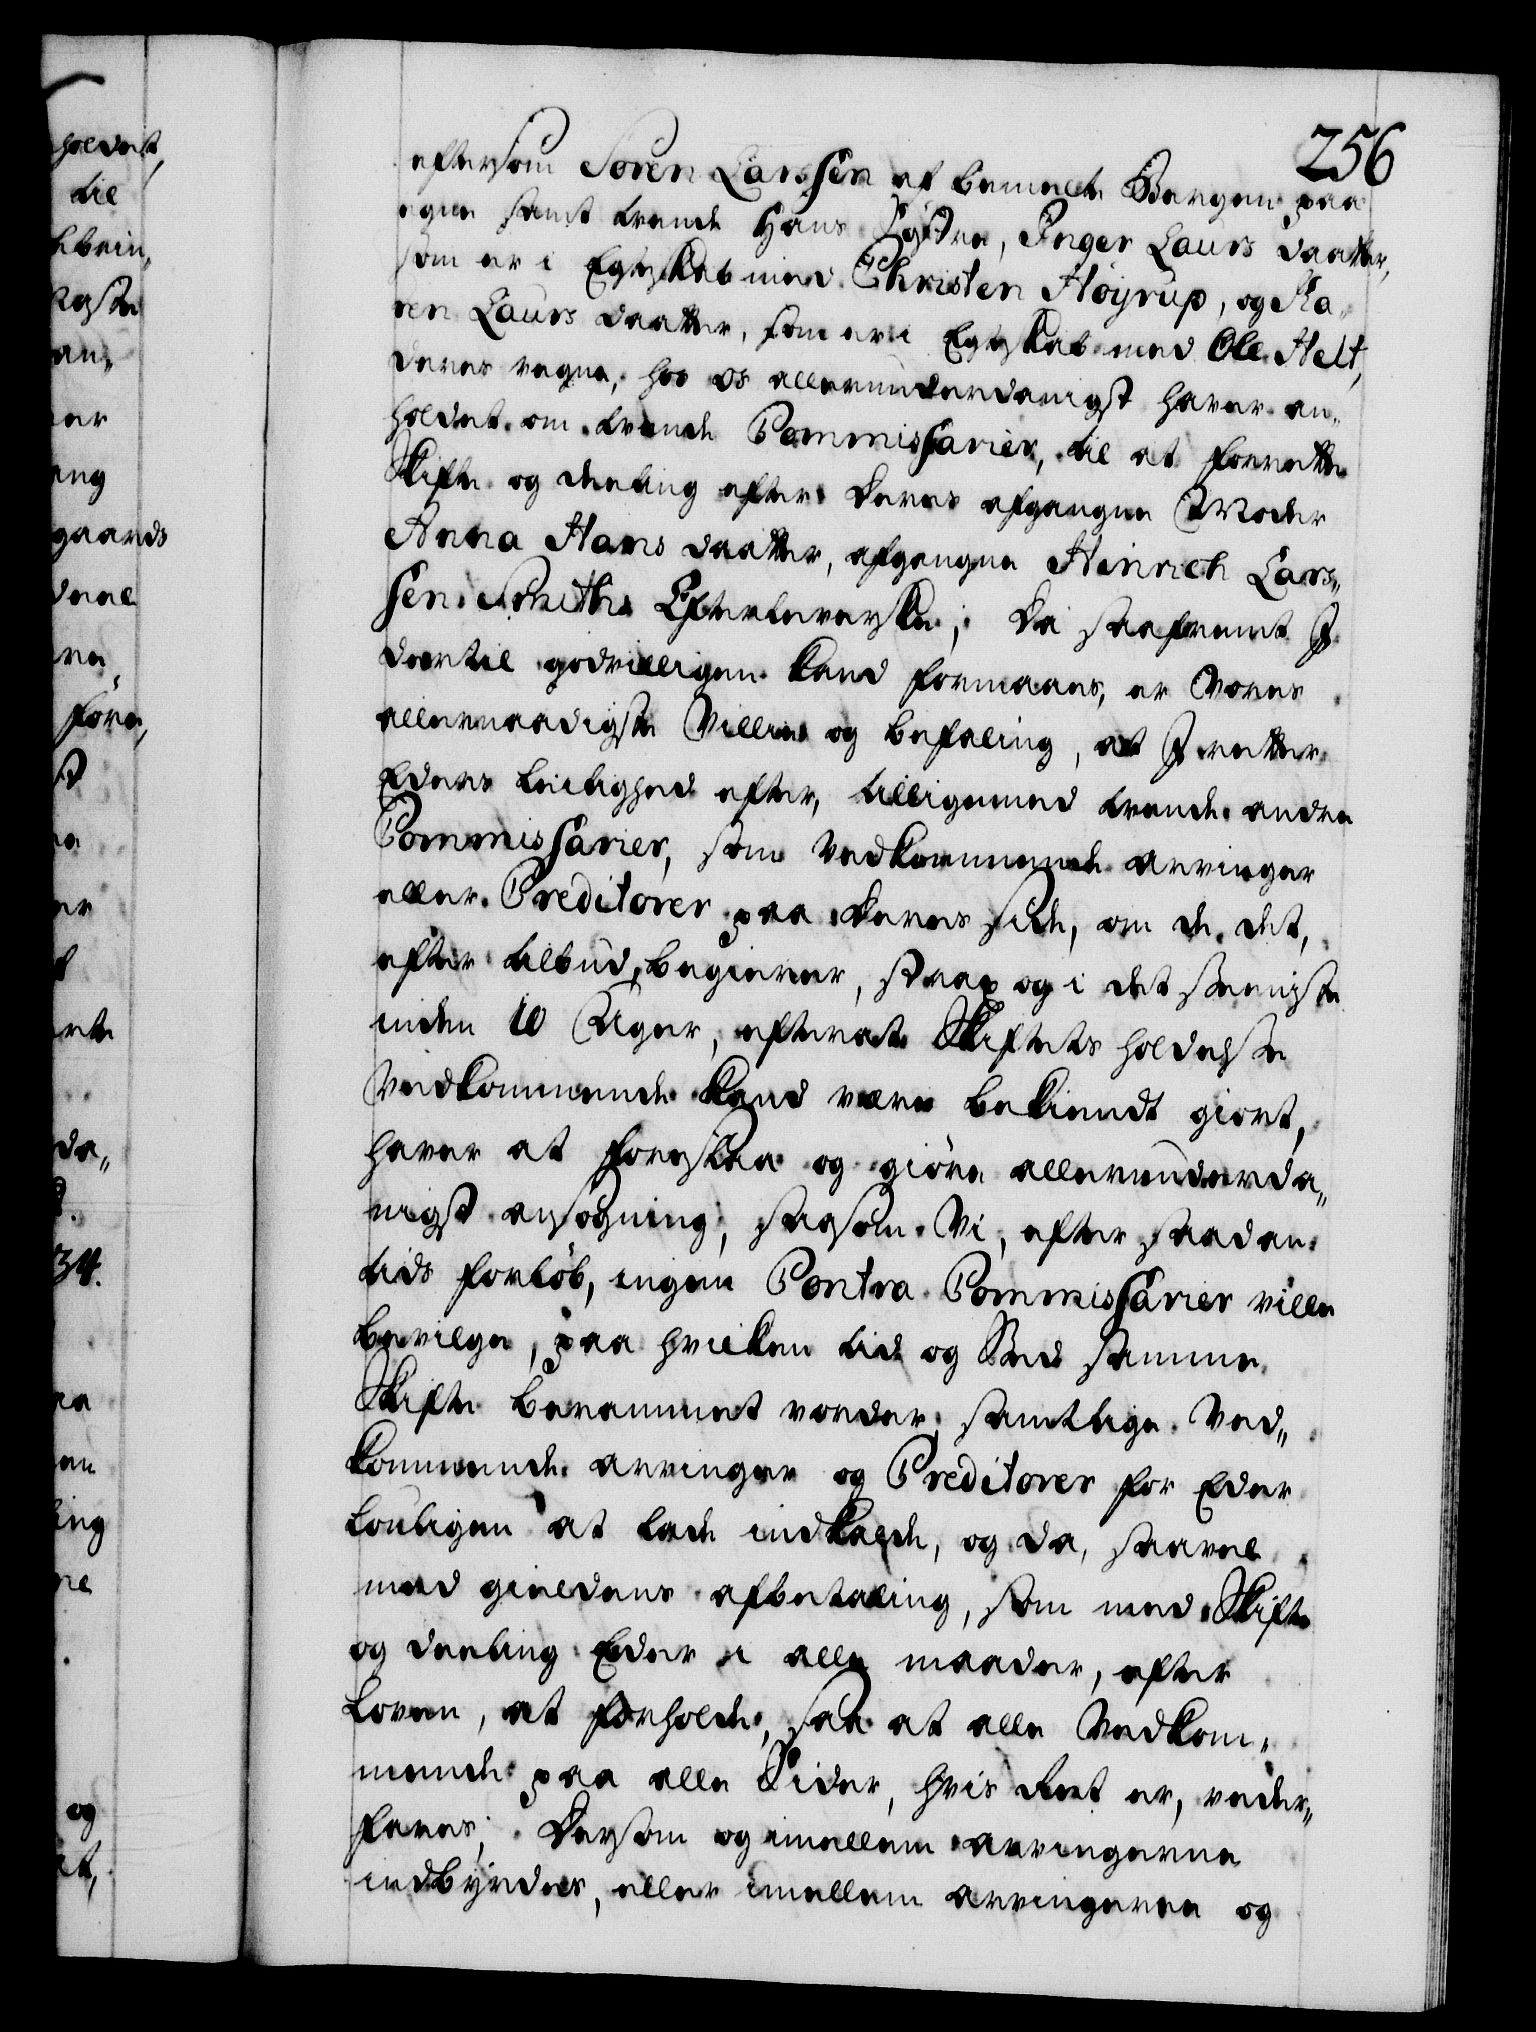 256
eftersom Sören Larssen af bemelte Bergen paa
egne samt tvende Hans Søstre, Inger Laurs daatter,
som er i Egteskab med Christen Höyrup, og Ka-
ren Laurs daatter, som er i Egteskab med Ole Helt,
deres vegne, hos os allerunderdanigst haver an-
holdet om tvende Commissarier, til at forrette
Skifte og deeling efter deres afgangne Moder
Anna Hans daatter, afgangne Hinrich Lars-
sen Smiths Efterleverske; Da saafremt I
dertil godvilligen kand formaaes, er Vores
allernaadigste Villie og befaling, at I retter
Eders leilighed efter, tilligemed tvende andre
Commissarier, som Vedkommende arvinger
eller Creditorer paa deres side, om de det,
efter tilbud, begierer, strax og i det seeniste
inden 10 Uger, efterat Skiftets holdelse
Vedkommende kand være bekiendt giort,
haver at foreslaae og giöre allerunderda-
nigst ansögning, saasom Vi, efter saadan
tids forlöb, ingen Contra Commissarier ville
bevilge, paa hvilken tid og Sted samme
Skifte berammet vorder, samtlige Ved-
kommende arvinger og Creditorer for Eder
lovligen at lade indkalde, og da, saavel
med gieldens afbetaling, som med Skifte
og deeling Eder i alle maader, efter
Loven, at forholde, saa at alle Vedkom-
mende paa alle Sider, hvis Ret er, veder-
fares; Dersom og imellem arvingerne
indbyrdes, eller imellem arvingerne og
holdet,
til
gaards
deel
före,
da-
34.
og